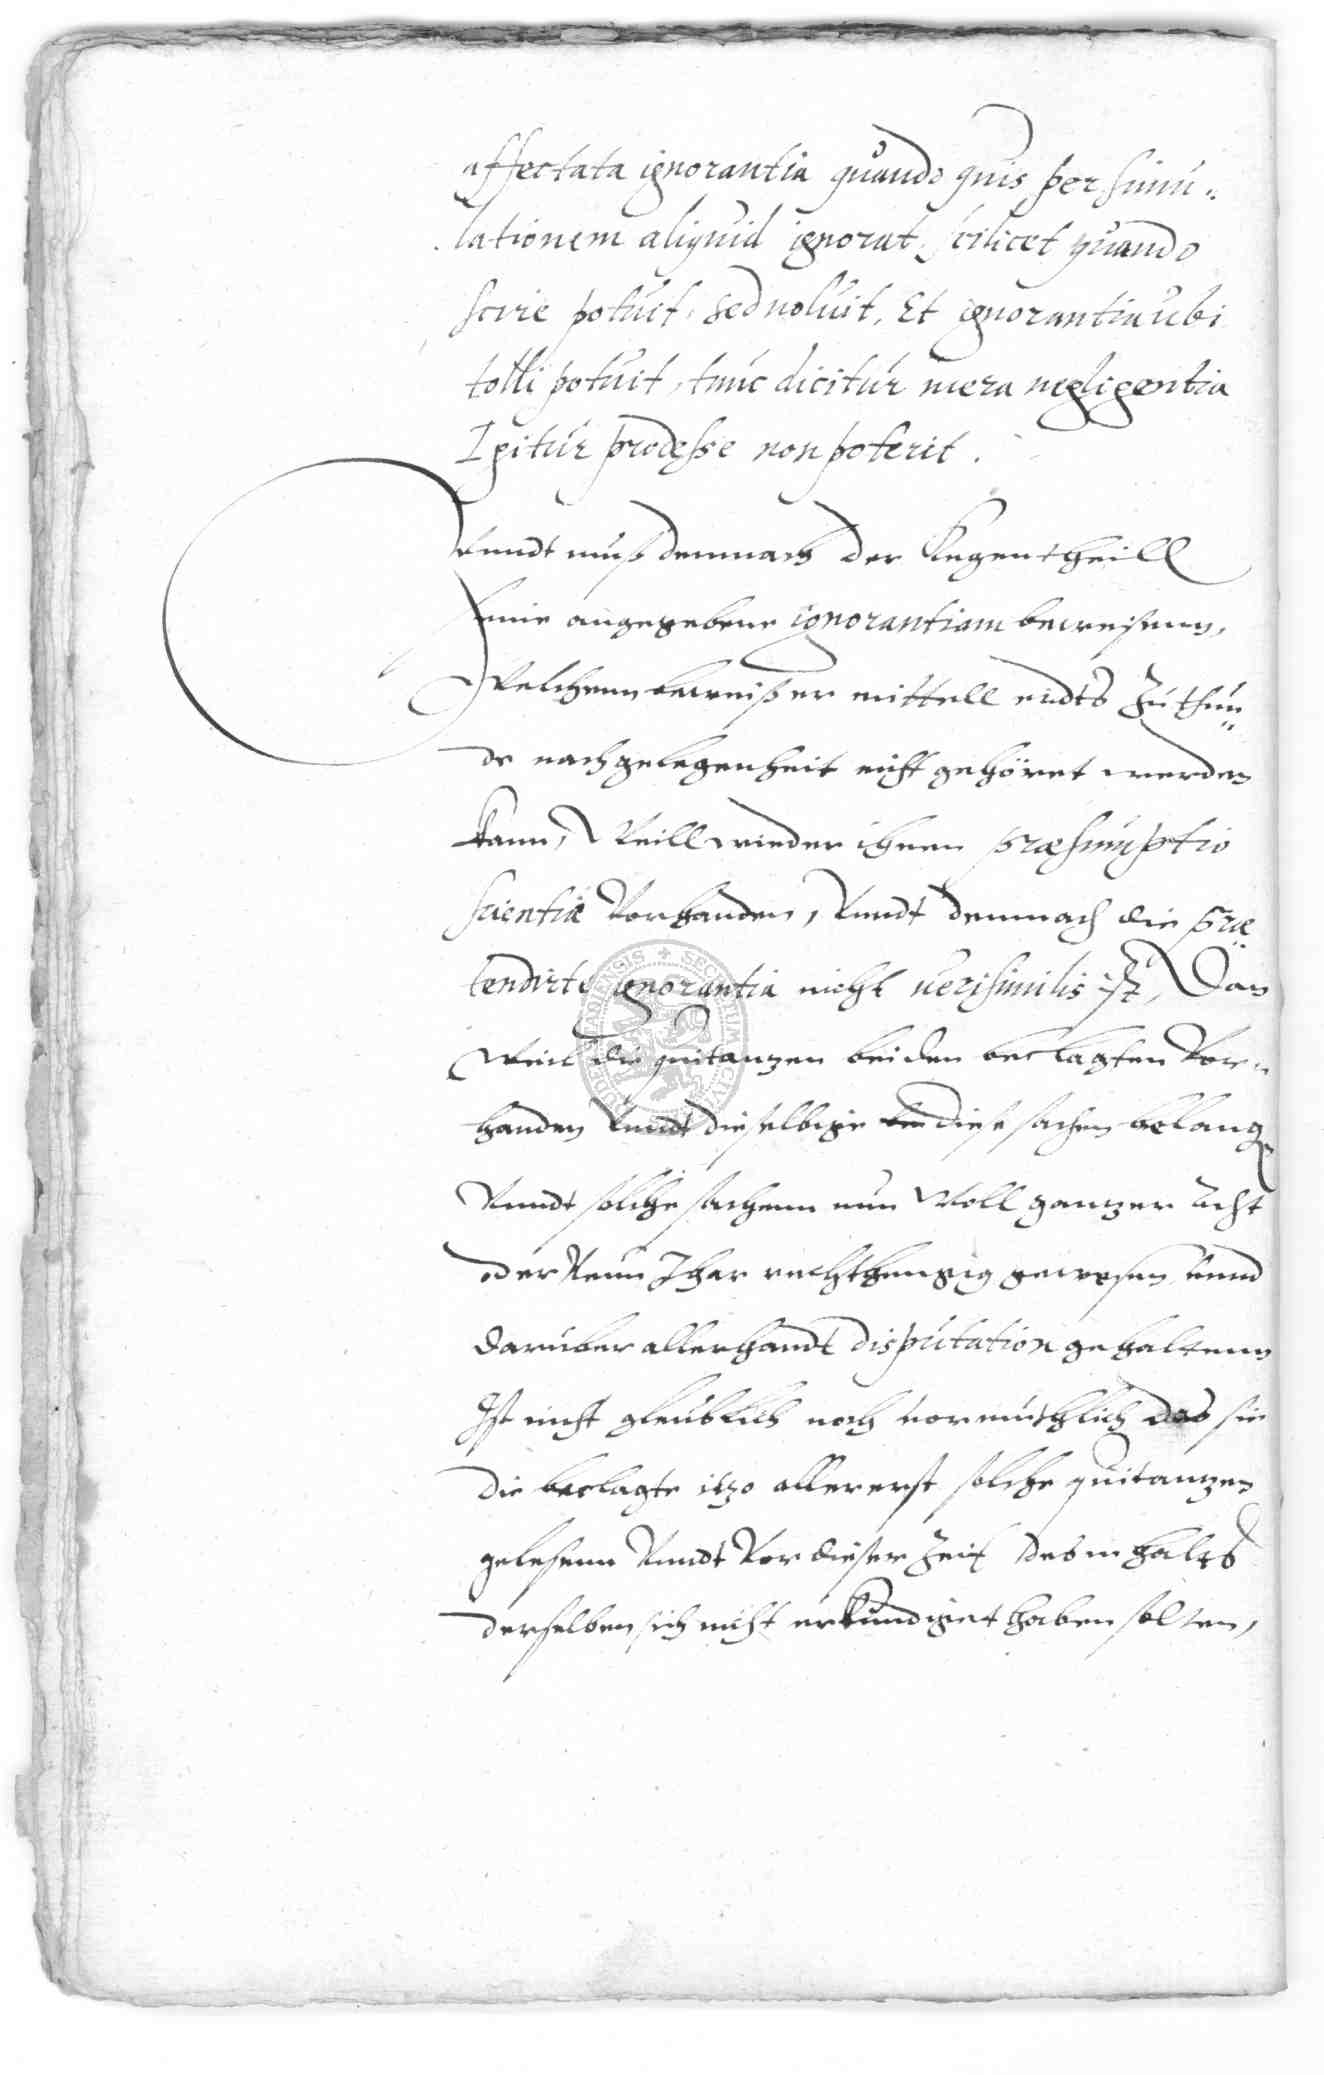 affectata ignorantia quando quis per simu¨
lationem aliquid ignorat, scilicet quando
scire potuit, sed noluit, Et ignorantia ubi
tolli potuit, tunc dicitur mera negligentia
Igitur prodesse non poterit.
Vnndt muß demnach der Kegentheill
seine angegebene ignorantiam beweisenn,
Welchenn beweiß er mittell eidts zu thun¨
de nach gelegenheit nicht gehöret werden
kann, Weill wieder ihnen præsumptio
scientiæ Vorhanden, Vnndt demnach die præ¨
tendirte ignorantia nicht uerisimilis ist, Dan
Weil die quitanzen bei den beclagten Vor¨
handen Vnndt dieselbige diese sachen belang
Vnndt solche sachenn nun Woll ganzer acht
oder Neun Jhar rechthengig gewesen, vnnd
daruber allerhandt disputation gehaltenn
Ist nicht gleublich noch vormuthlich das sie
die beclagte itzo allererst solche quitanzen
gelesenn Vnndt Vor dieser Zeit des inhalts
derselben sich nicht erkundiget haben solten,
SECRETUM CIVI